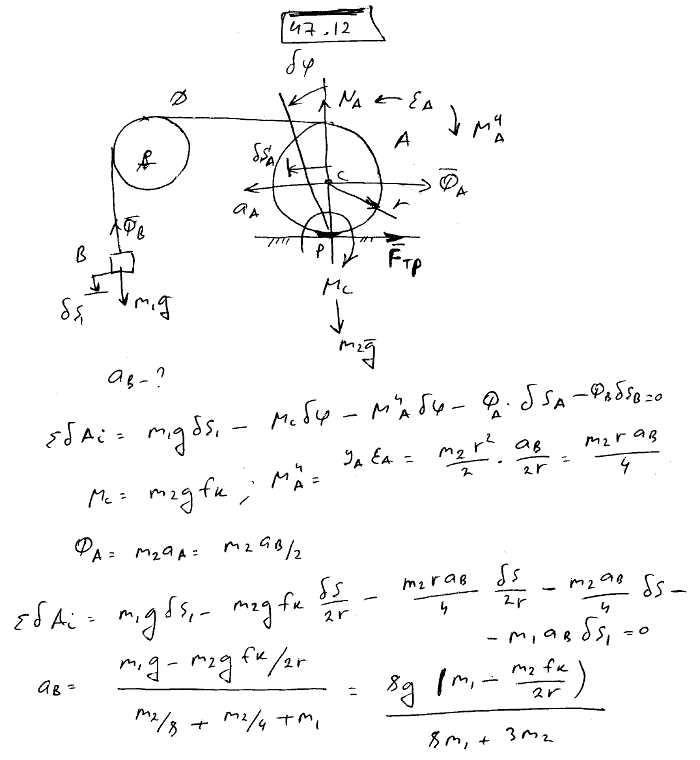 47.12
δφ
D
N_A
ε_A
A
M_A^и
δS_A
C
Φ̄_A
a_A
r
Φ̄_B
B
P
F̄_тр
M_C
δS_1
m_1g
m_2ḡ
a_B - ?
ΣδA_i = m_1gδS_1 - M_Cδφ - M_A^и δφ - Φ_A · δS_A - Φ_BδS_B = 0
M_C = m_2gf_к ; M_A^и = J_Aε_A = m_2r²/2 · a_B/2r = m_2ra_B/4
Φ_A = m_2a_A = m_2a_B/2
ΣδA_i = m_1gδS_1 - m_2gf_к δS/2r - m_2ra_B/4 δS/2r - m_2a_B/4 δS -
- m_1a_BδS_1 = 0
a_B = (m_1g - m_2gf_к/2r)/(m_2/8 + m_2/4 + m_1) = 8g(m_1 - m_2f_к/2r)/(8m_1 + 3m_2)